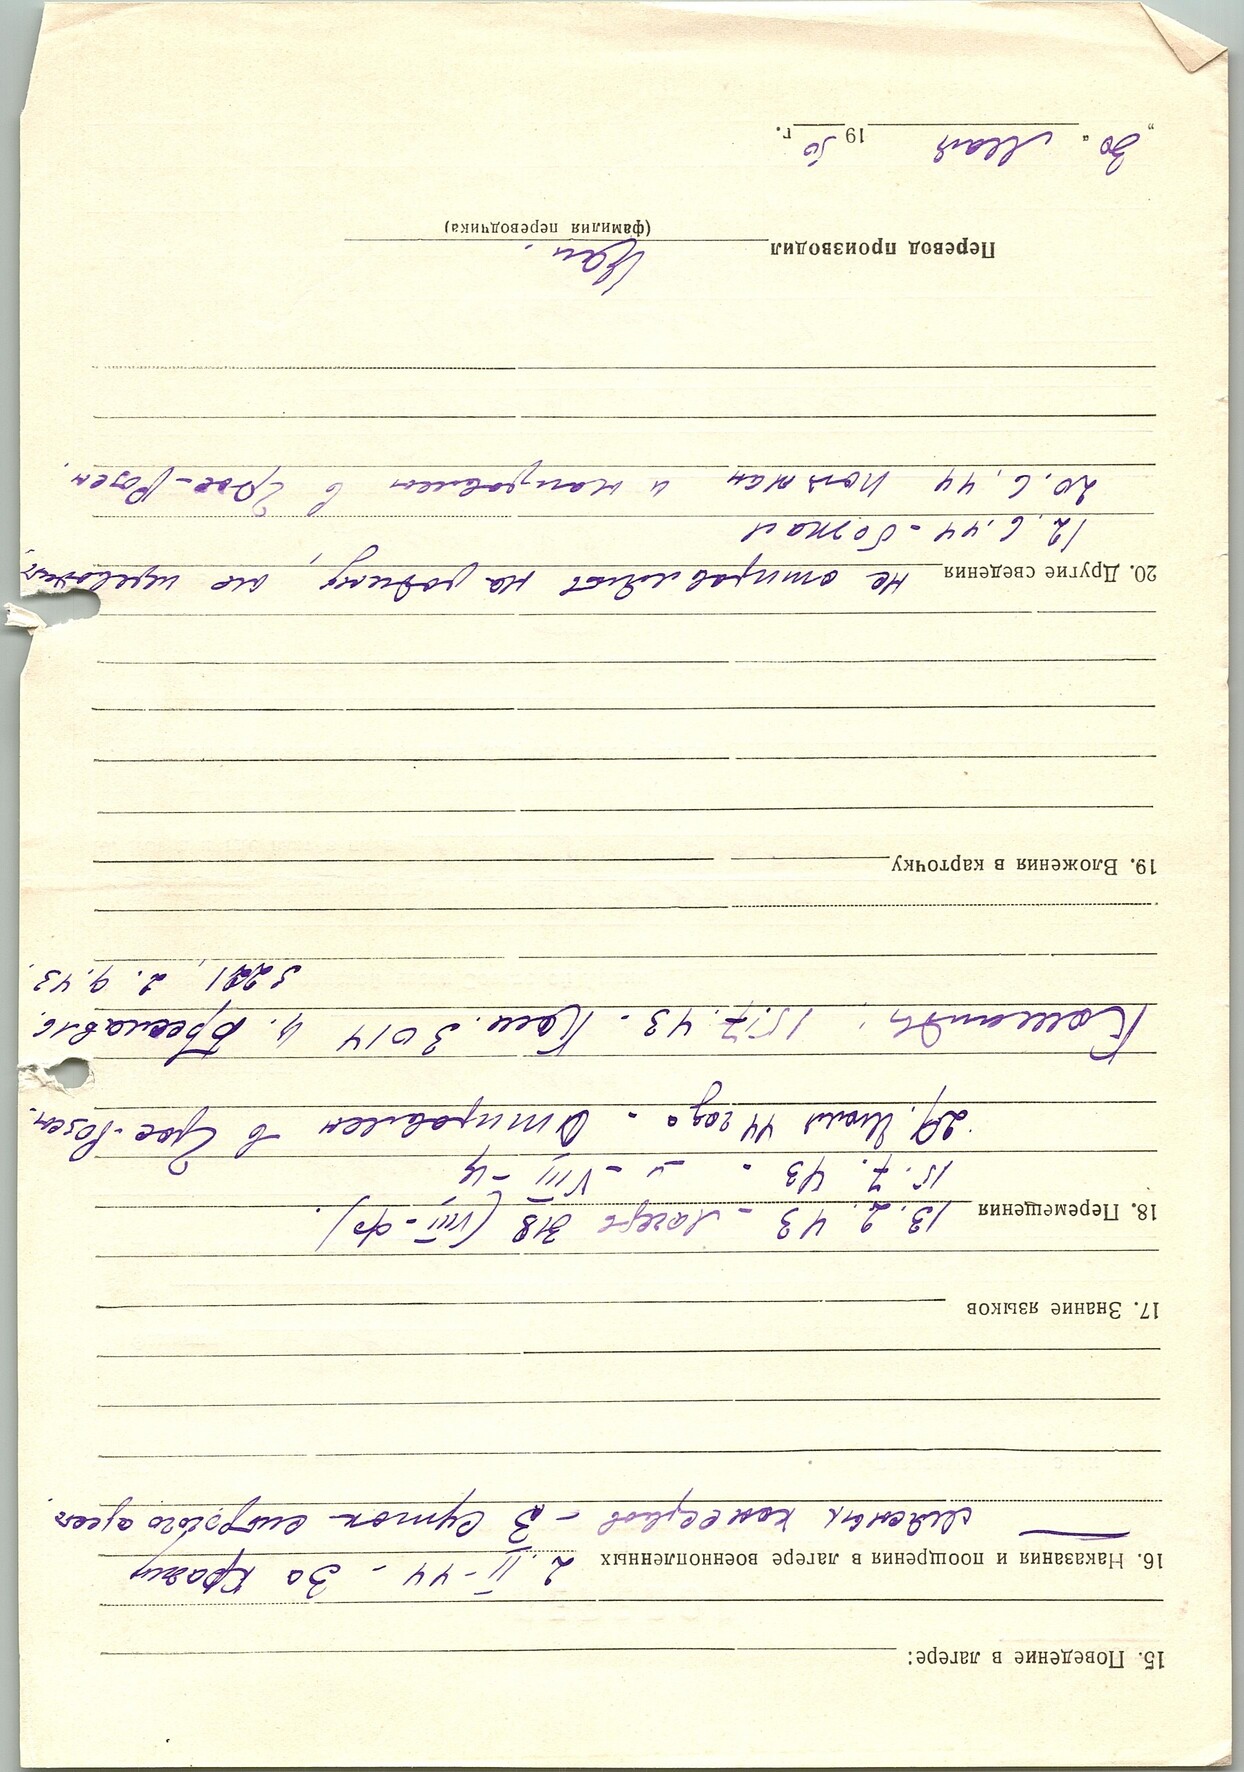 15. Поведение в лагере:
16. Наказания и поощрения в лагере военнопленных 2.II-44 - За кражу
мясных консервов - 3 суток строгого арест.
17. Знание языков
18. Перемещения 13.2.43 - лагерь 318 (VIII-ф).
15.7.43 - " - VIII-ц
29. Июля 44 года - Отправлен в Грос-Розен.
Команды: 15.7.43 - Ком. 3014 Бреславль,
221, 2.9.43.
19. Вложения в карточку
20. Другие сведения не отправляют на родину, не
12.6.44 - бежал
20.6.44 пойман и направлен в Грос-Розен.
Перевод производил
(фамилия переводчика)
„30“ Мая 1950 г.